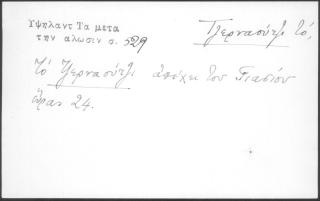 Υψηλαντ Τα μετα
την αλωσιν σ. 529
Τζερνασούτζι τό,
Τό Τζερνασούτζι ἀπέχει τοῦ Γιασίου
ὥρας 24.